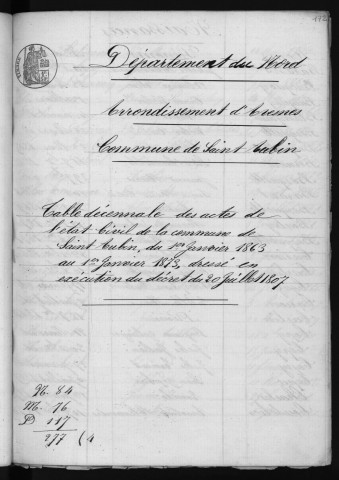 Département du Nord
Arrondissement d'Avesnes
Commune de Saint Aubin
Table décennale des actes de
l'état Civil de la commune de
Saint Aubin, du 1er Janvier 1863
au 1er Janvier 1873, dressé en
exécution du décret du 20 Juillet 1807
N. 84
M. 76
D 117
277 (4